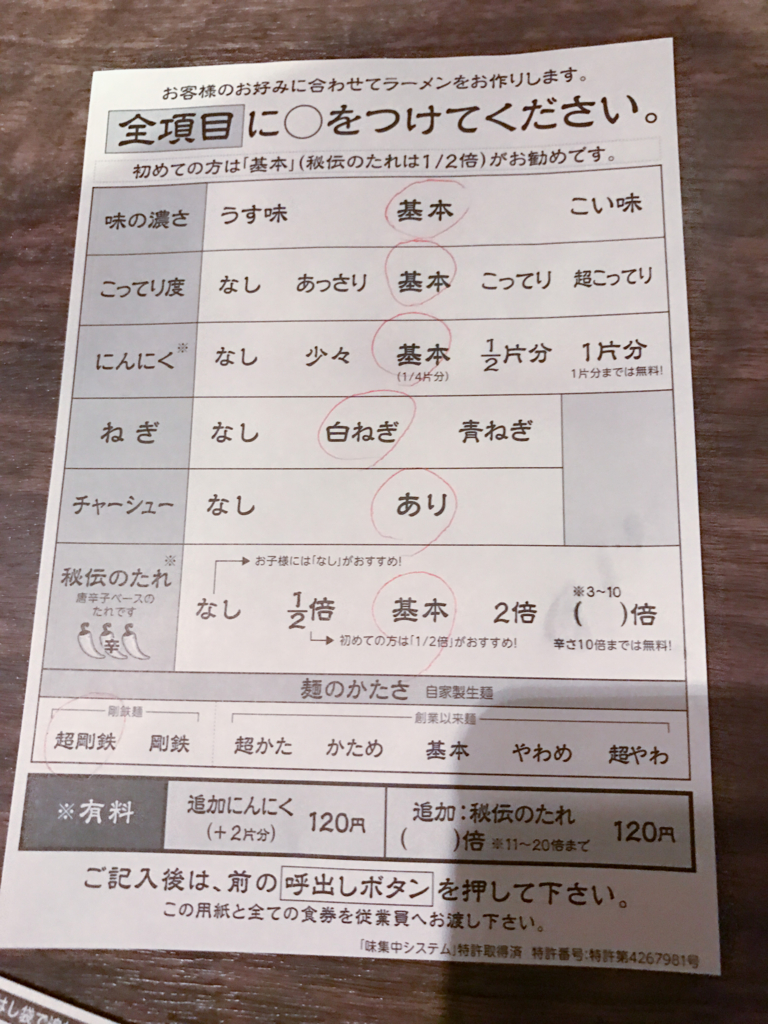 お客様のお好みに合わせてラーメンをお作りします。
全項目に○をつけてください。
初めての方は「基本」(秘伝のたれは1/2倍)がお勧めです。
味の濃さ うす味 基本 こい味
こってり度 なし あっさり 基本 こってり 超こってり
にんにく※ なし 少々 基本 1/2片分 1片分
(1/4片分) 1片分までは無料!
ねぎ なし 白ねぎ 青ねぎ
チャーシュー なし あり
※
お子様には「なし」がおすすめ!
秘伝のたれ
唐辛子ベースの
たれです
辛
なし 1/2倍 基本 2倍 ( )倍
※3〜10
初めての方は「1/2倍」がおすすめ! 辛さ10倍までは無料!
麺のかたさ 自家製生麺
剛鉄麺 創業以来麺
超剛鉄 剛鉄 超かた かため 基本 やわめ 超やわ
※有料
追加にんにく
(+2片分)
120円
追加:秘伝のたれ
( )倍 ※11〜20倍まで
120円
ご記入後は、前の呼出しボタンを押して下さい。
この用紙と全ての食券を従業員へお渡し下さい。
「味集中システム」特許取得済 特許番号:特許第4267981号
はし袋で